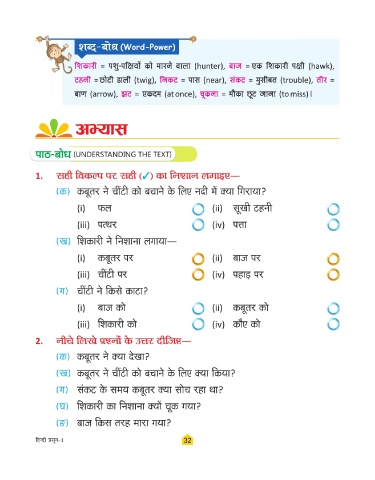 शब्द-बोध (Word-Power)
शिकारी = पशु-पक्षियों को मारने वाला (hunter), बाज = एक शिकारी पक्षी (hawk),
टहनी = छोटी डाली (twig), निकट = पास (near), संकट = मुसीबत (trouble), तीर =
बाण (arrow), झट = एकदम (at once), चूकना = मौका छूट जाना (to miss)।
अभ्यास
पाठ-बोध (UNDERSTANDING THE TEXT)
1. सही विकल्प पर सही (✓) का निशान लगाइए—
(क) कबूतर ने चींटी को बचाने के लिए नदी में क्या गिराया?
(i) फल (ii) सूखी टहनी
(iii) पत्थर (iv) पत्ता
(ख) शिकारी ने निशाना लगाया—
(i) कबूतर पर (ii) बाज पर
(iii) चींटी पर (iv) पहाड़ पर
(ग) चींटी ने किसे काटा?
(i) बाज को (ii) कबूतर को
(iii) शिकारी को (iv) कौए को
2. नीचे लिखे प्रश्नों के उत्तर दीजिए—
(क) कबूतर ने क्या देखा?
(ख) कबूतर ने चींटी को बचाने के लिए क्या किया?
(ग) संकट के समय कबूतर क्या सोच रहा था?
(घ) शिकारी का निशाना क्यों चूक गया?
(ङ) बाज किस तरह मारा गया?
हिन्दी प्रसून-1 32